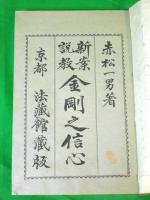 赤松一男著
新案説教 金剛之信心
京都 法藏館藏版